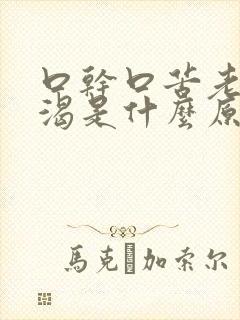 口幹口苦老
渴是什麼原
馬克 加索尔